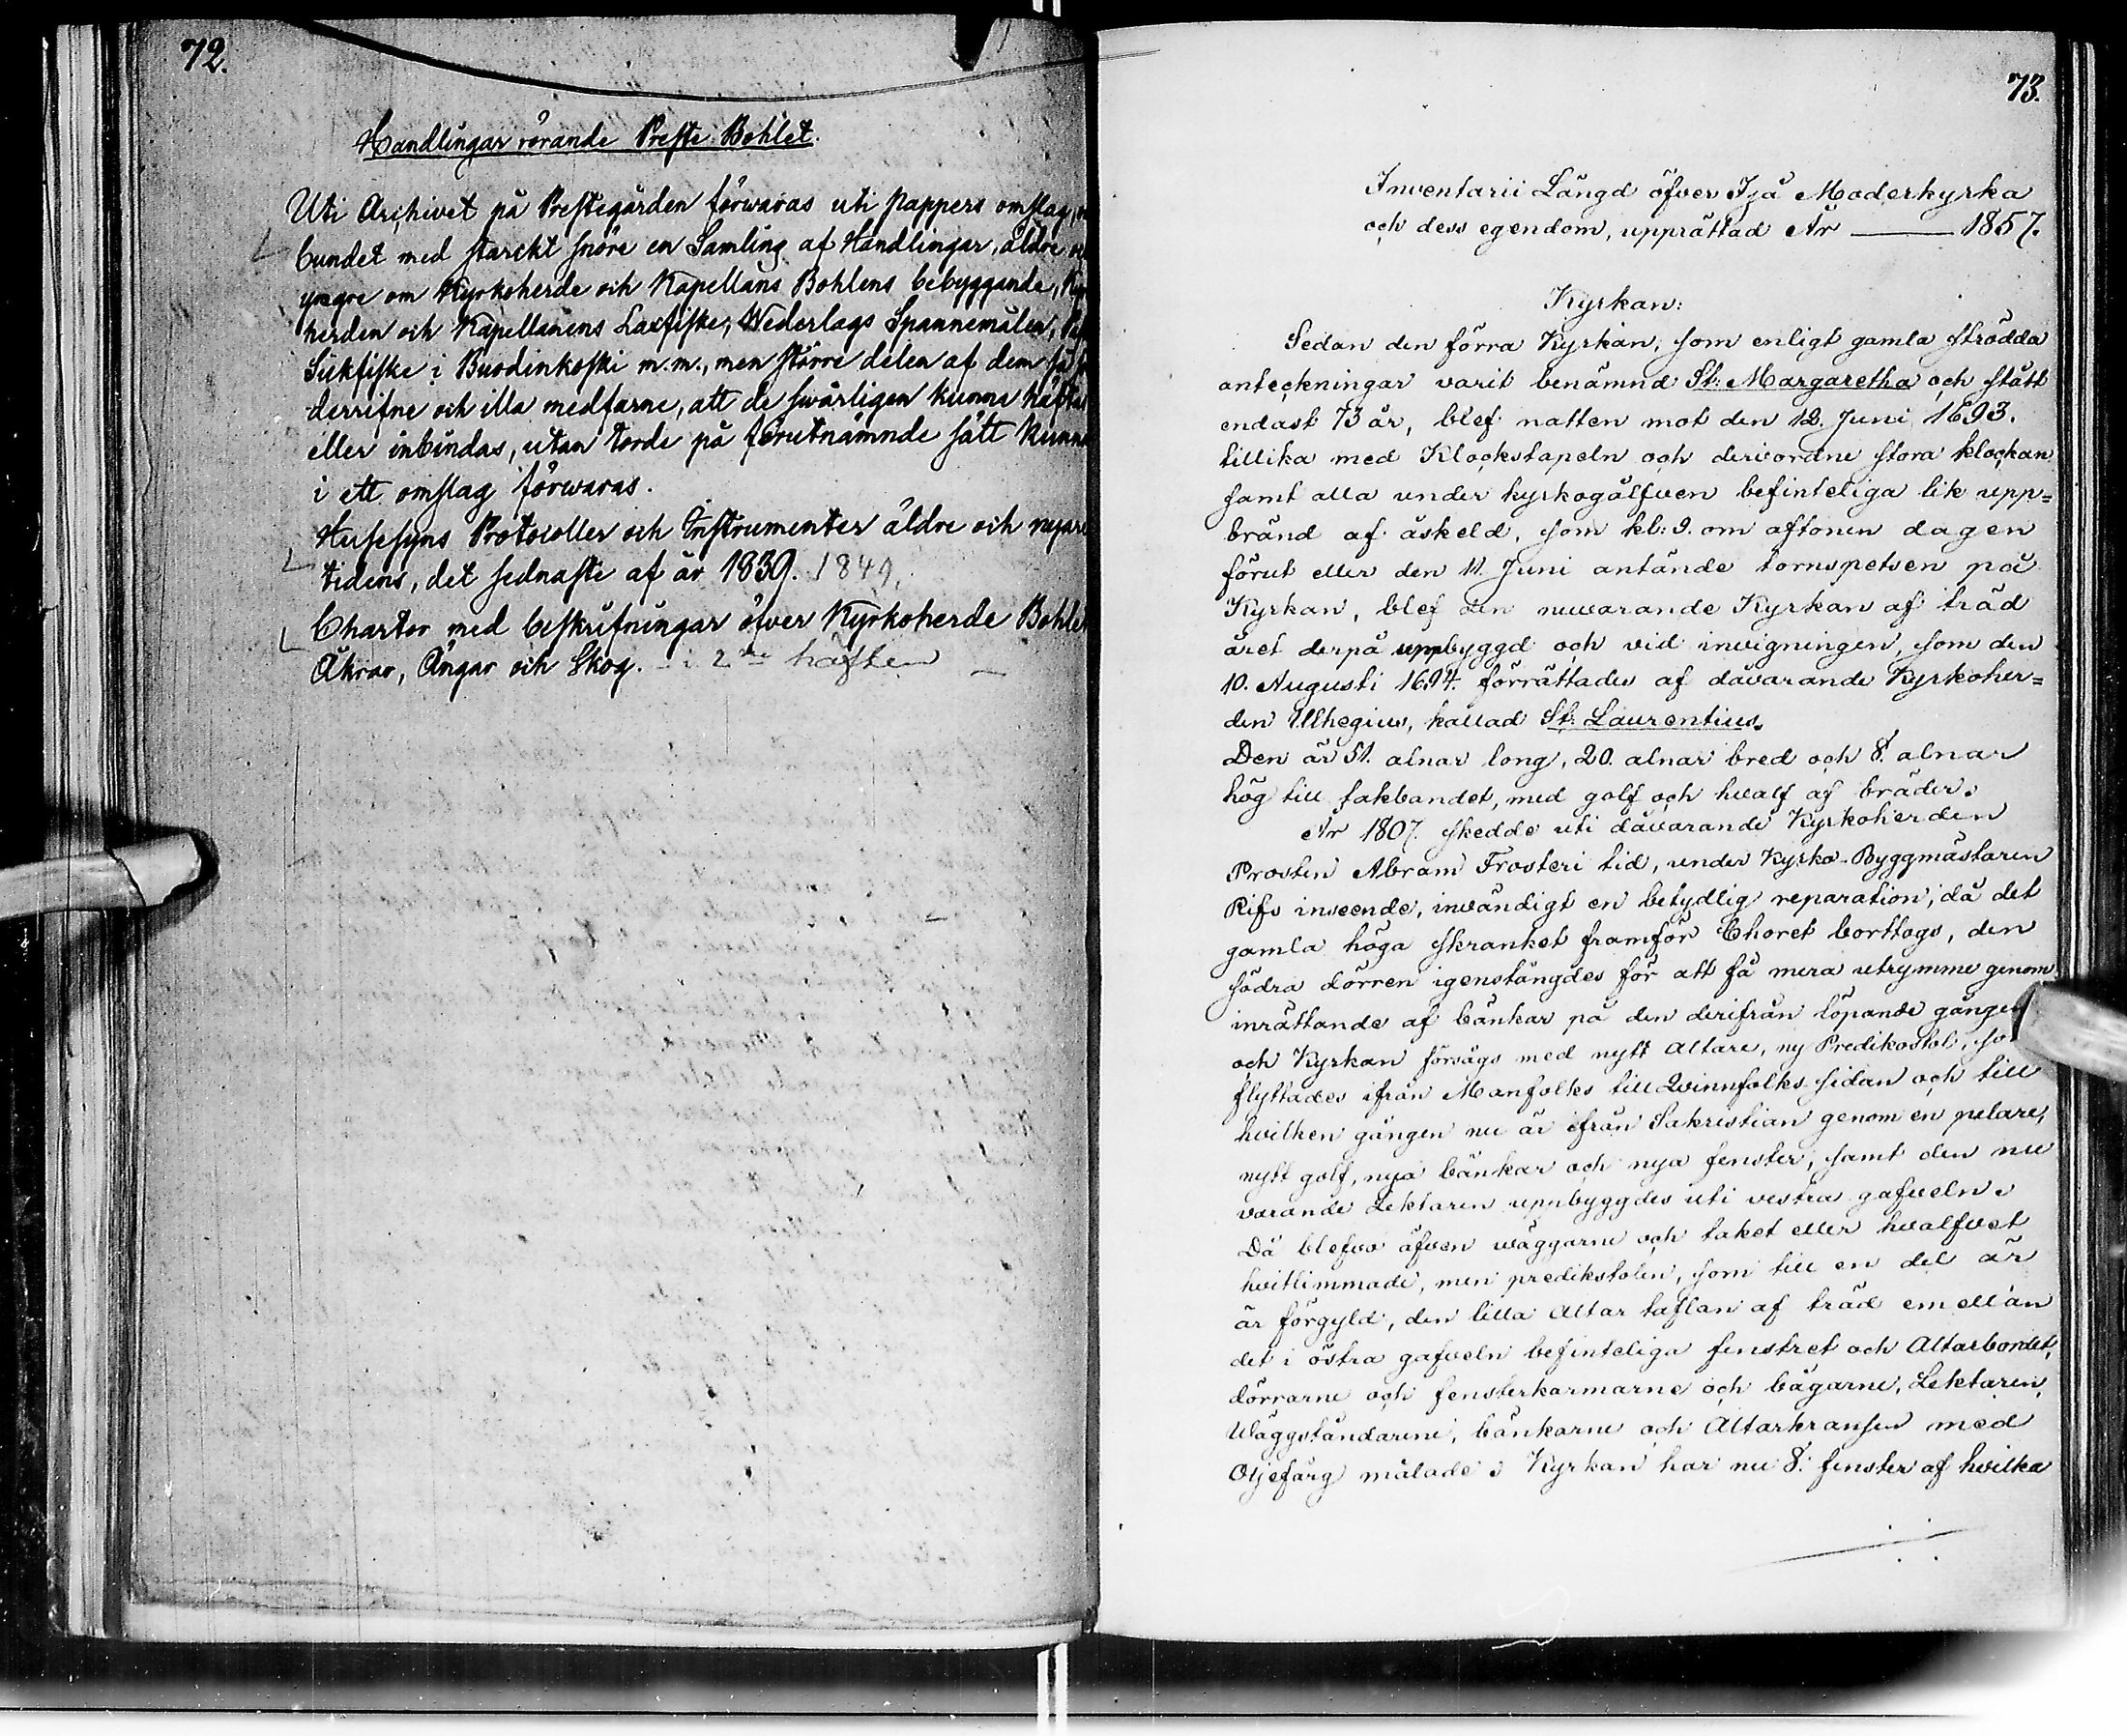 72.
Handlingar rörande Preste Bohlet.
Uti Archivet på Prestegården förwaras uti pappers omslag,
bundet med starckt snöre en Samling af Handlingar, äldre
yngre om Kyrkoherde och Kapellans Bohlens bebyggande,
herden och Kapellanens Laxfiske, Wederlags Spannemålen,
Siikfiske i Buodinkoski m.m., men större delen af dem så
derrifne och illa medfarne, att de swårligen kunna häftas
eller inbindas, utan torde på förutnämnde sätt kunna
i ett omslag förwaras.
Husesyns Protocoller och Instrumenter äldre och nyare
tidens, det sednaste af år 1839. 1849.
Chartor med beskrifningar öfver Kyrkoherde Bohlet
Åkrar, Ängar och Skog. - i 2ne häften -
73.
Inventarii Längd öfver Ijå Moderkyrka
och dess egendom, upprättad År — 1857.
Kyrkan:
Sedan den förra Kyrkan, som enligt gamla strödda
anteckningar varit benämnd St: Margaretha och stått
endast 73 år, blef natten mot den 12. Juni 1693.
tillika med Klockstapeln och derivordne stora klockan
samt alla under kyrkogålfven befinteliga lik upp=
bränd af åskeld, som kl: 9. om aftonen dagen
förut eller den 11. Juni antände tornspetsen på
Kyrkan, blef den nuvarande Kyrkan af träd
året derpå uppbyggd och vid invigningen, som den
10. Augusti 1694. förrättades af dåvarande Kyrkoher=
den Ulhegius, kallad St: Laurentius.
Den är 51. alnar long, 20. alnar bred och 8. alnar
hög till takbandet, med golf och hvalf af bräder.
År 1807. skedde uti dåvarande Kyrkoherden
Prosten Abram Frosteri tid, under Kyrko-Byggmästaren
Rifs inseende, invändigt en betydlig reparation, då det
gamla höga skranket framför Choret borttogs, den
södra dörren igenstängdes för att få mera utrymme genom
inrättande af bänkar på den derifrån löpande gången
och Kyrkan försågs med nytt Altare, ny Predikostol,
flyttades ifrån Manfolks till Qvinnfolks sidan och till
hvilken gången nu är ifrån Sakristian genom en pelare,
nytt golf, nya bänkar och nya fenster, samt den nu
varande Lektaren uppbyggdes uti vestra gafveln.
Då blefvo äfven wäggarne och taket eller hvalfvet
hvitlimmade, men predikstolen, som till en del är
är förgyld, den lilla Altar taflan af träd emellan
det i östra gafveln befinteliga fenstret och Altarbordet,
dörrarne och fensterkarmarne och bågarne, Lektaren,
Wäggståndarene, bänkarne och Altarkransen med
Oljefärg målade. Kyrkan har nu 8. fenster af hvilka